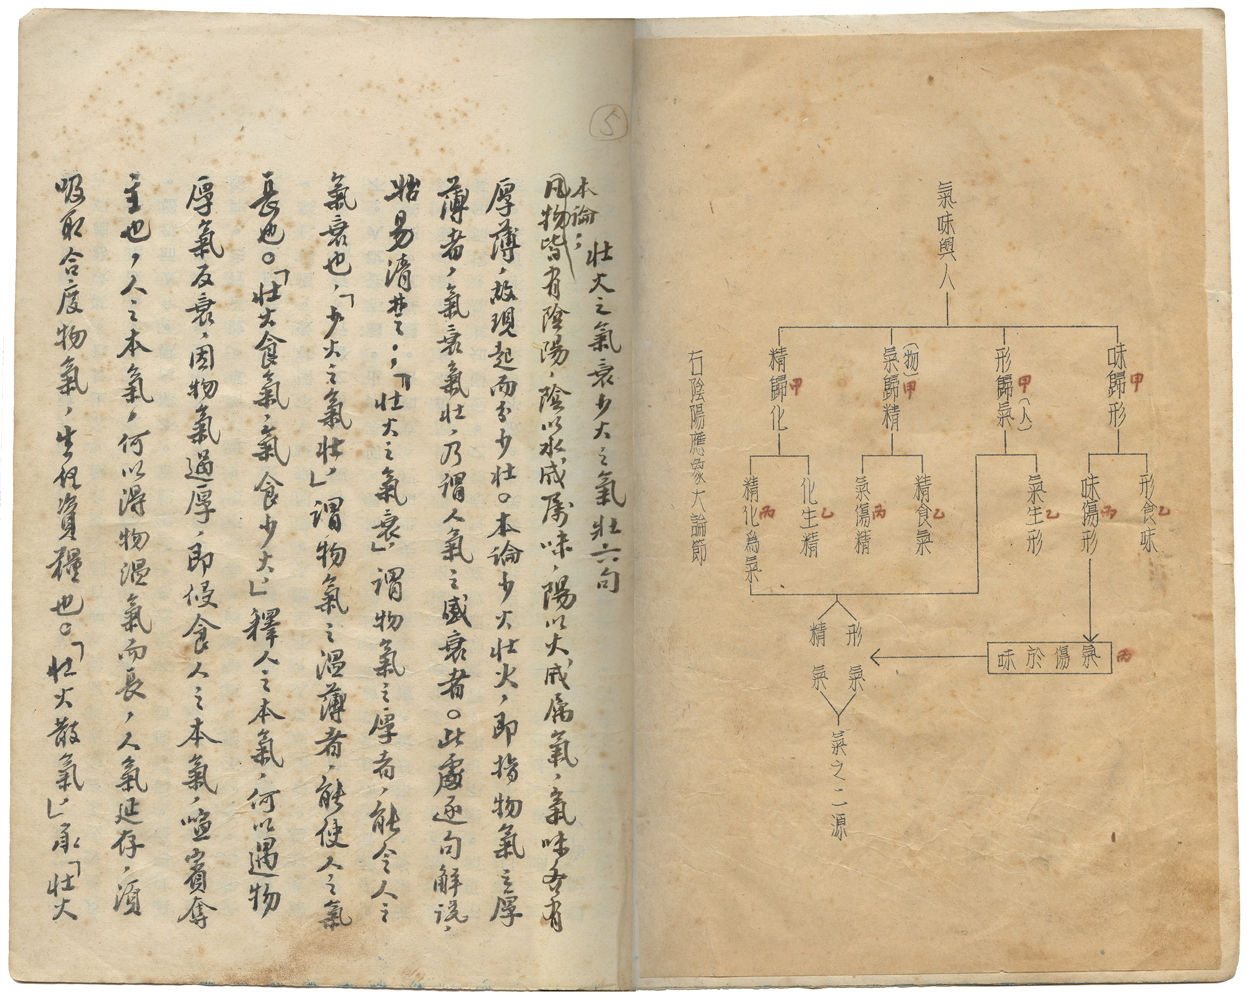 氣味與人
味歸形 甲
形歸氣(人) 甲
(物)氣歸精 甲
精歸化 甲
形食味 乙
味傷形 丙
氣生形 乙
精食氣 乙
氣傷精 丙
化生精 乙
精化為氣 丙
氣傷於味 丙
形氣
精氣
氣之二源
右陰陽應象大論節
5
壯火之氣衰少火之氣壯六句
本論;
凡物皆有陰陽,陰以水成屬味,陽以火成屬氣,氣味各有
厚薄,故現起而分少壯。本論少火壯火,即指物氣之厚
薄者,氣衰氣壯,乃謂人氣之盛衰者。此處逐句解說,
始易清楚:,「壯火之氣衰」,謂物氣之厚者,能令人之
氣衰也,「少火之氣壯」,謂物氣之溫薄者,能使人之氣
長也。「壯火食氣,氣食少火」,釋人之本氣,何以遇物
厚氣反衰,因物氣過厚,即侵食人之本氣,喧賓奪
主也,人之本氣,何以得物溫氣而長,人氣延存,須
吸取合度物氣,生促資糧也。「壯火散氣」,承「壯火